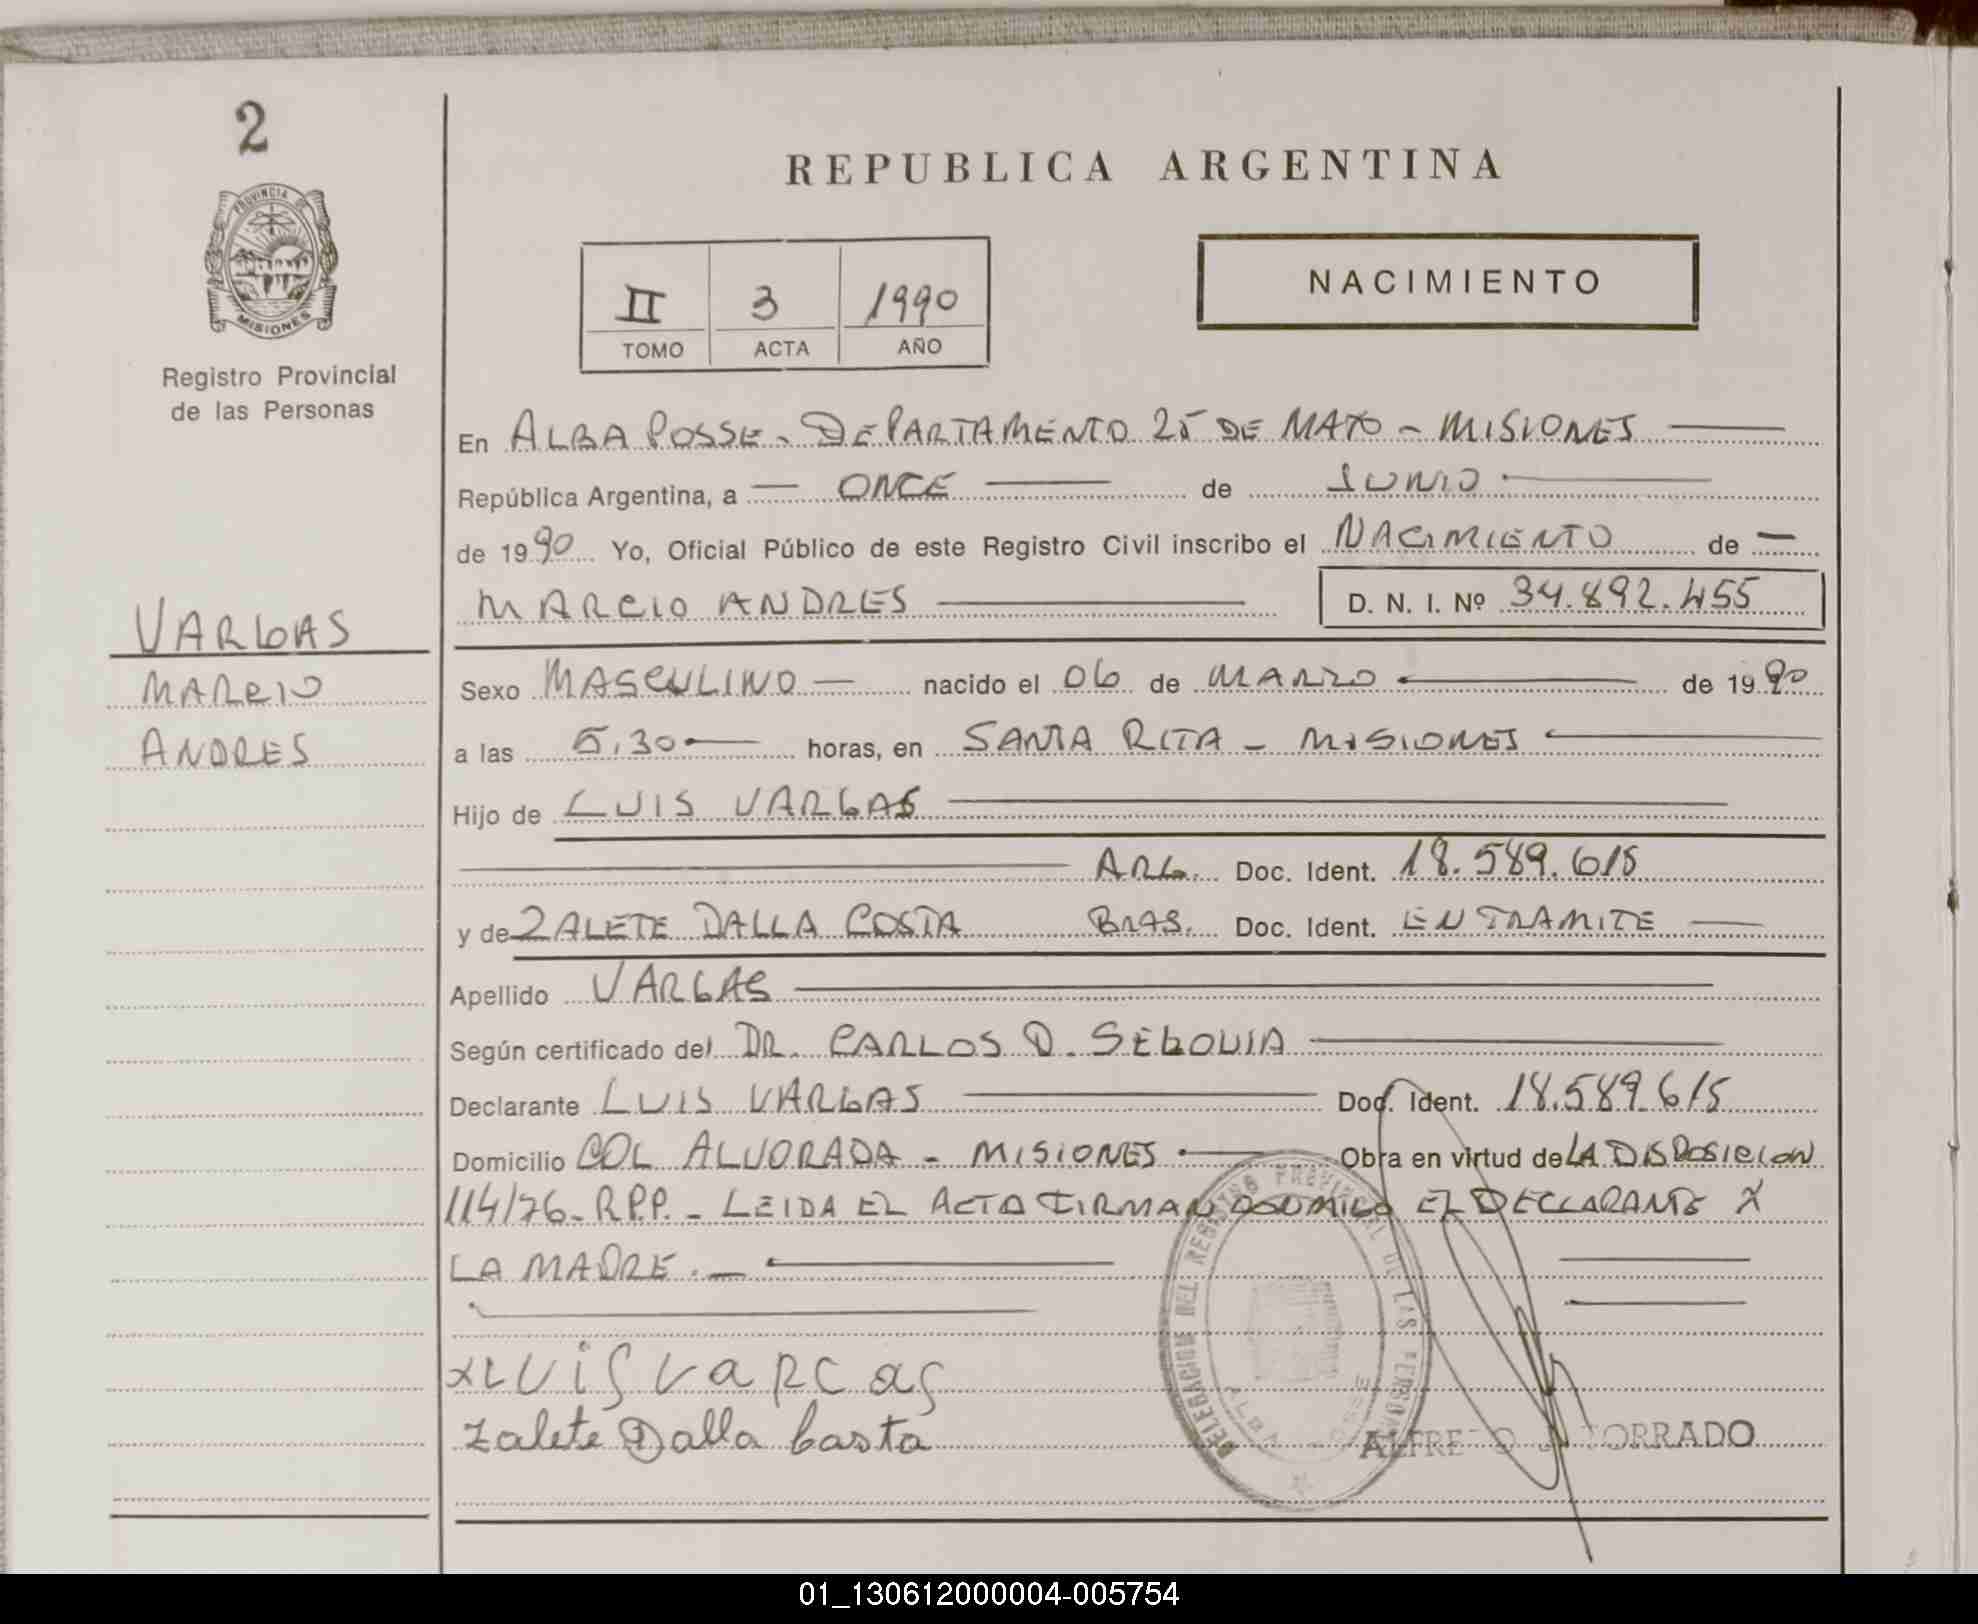 2
PROVINCIA DE
MISIONES
Registro Provincial
de las Personas
VARGAS
MARCIO
ANDRES
REPUBLICA ARGENTINA
II 3 1990
TOMO ACTA AÑO
NACIMIENTO
En ALBA POSSE - DEPARTAMENTO 25 DE MAYO - MISIONES
República Argentina, a ONCE de JUNIO
de 1990 Yo, Oficial Público de este Registro Civil inscribo el NACIMIENTO de
MARCIO ANDRES D. N. I. Nº 34.892.455
Sexo MASCULINO nacido el 06 de MARZO de 1990
a las 5,30 horas, en SANTA RITA - MISIONES
Hijo de LUIS VARGAS
ARG. Doc. Ident. 18.589.615
y de ZALETE DALLA COSTA BRAS. Doc. Ident. EN TRAMITE
Apellido VARGAS
Según certificado del DR. CARLOS D. SEGOVIA
Declarante LUIS VARGAS Doc. Ident. 18.589.615
Domicilio COL ALVORADA - MISIONES Obra en virtud de LA DISPOSICION
114/76 - R.P.P. - LEIDA EL ACTA FIRMAN CONMIGO EL DECLARANTE Y
LA MADRE.
x LUIS VARGAS
Zalete Dalla Costa
DELEGACION DEL REGISTRO PROVINCIAL DE LAS PERSONAS
ALBA POSSE
ALFREDO J. TORRADO
01_130612000004-005754